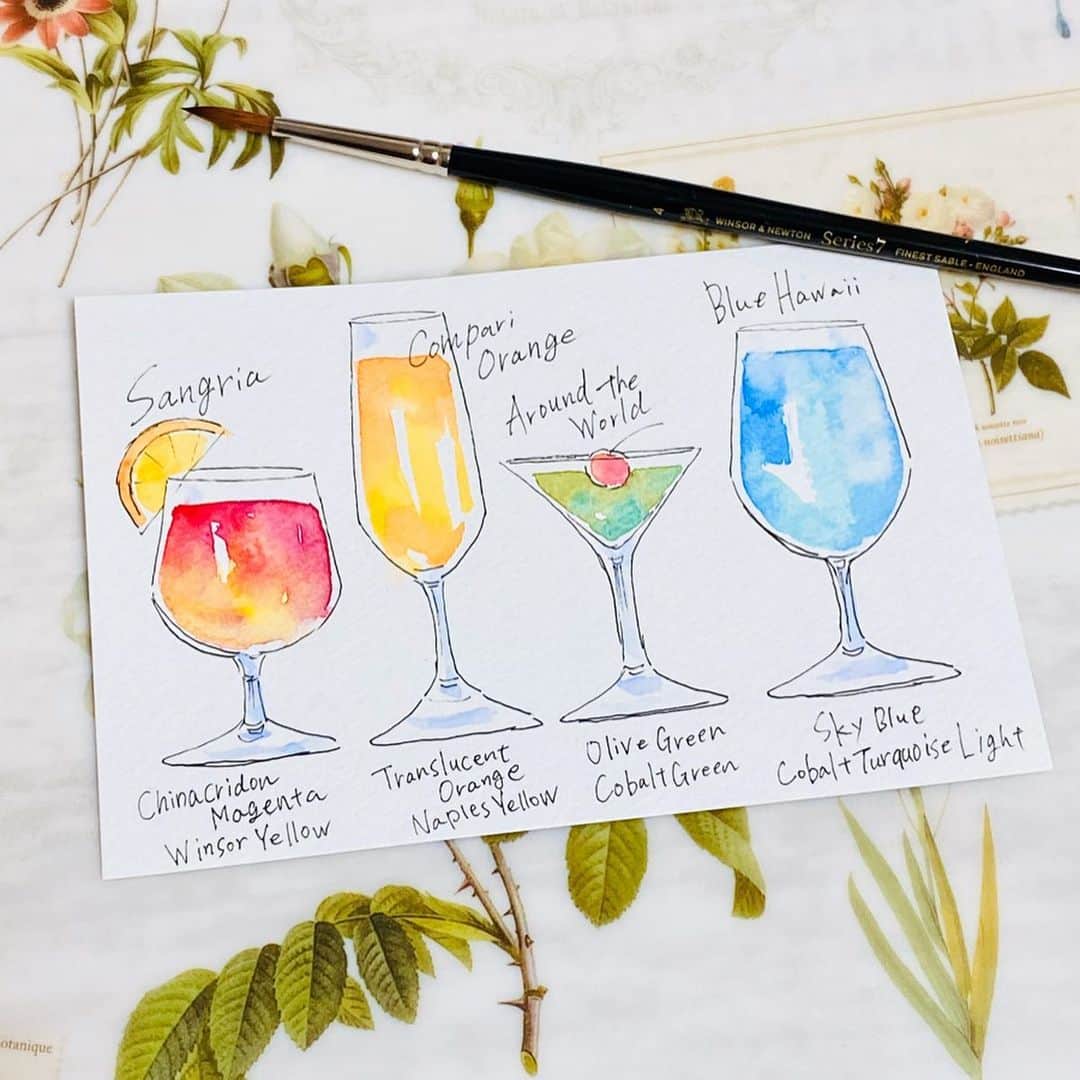 WINSOR & NEWTON Series 7 FINEST SABLE - ENGLAND
4
Blue Hawaii
Compari
Orange
Sangria
Around the
World
Chinacridon
Magenta
Winsor Yellow
Translucent
Orange
Naples Yellow
Olive Green
Cobalt Green
Sky Blue
Cobalt Turquoise Light
noisettiana)
otanique